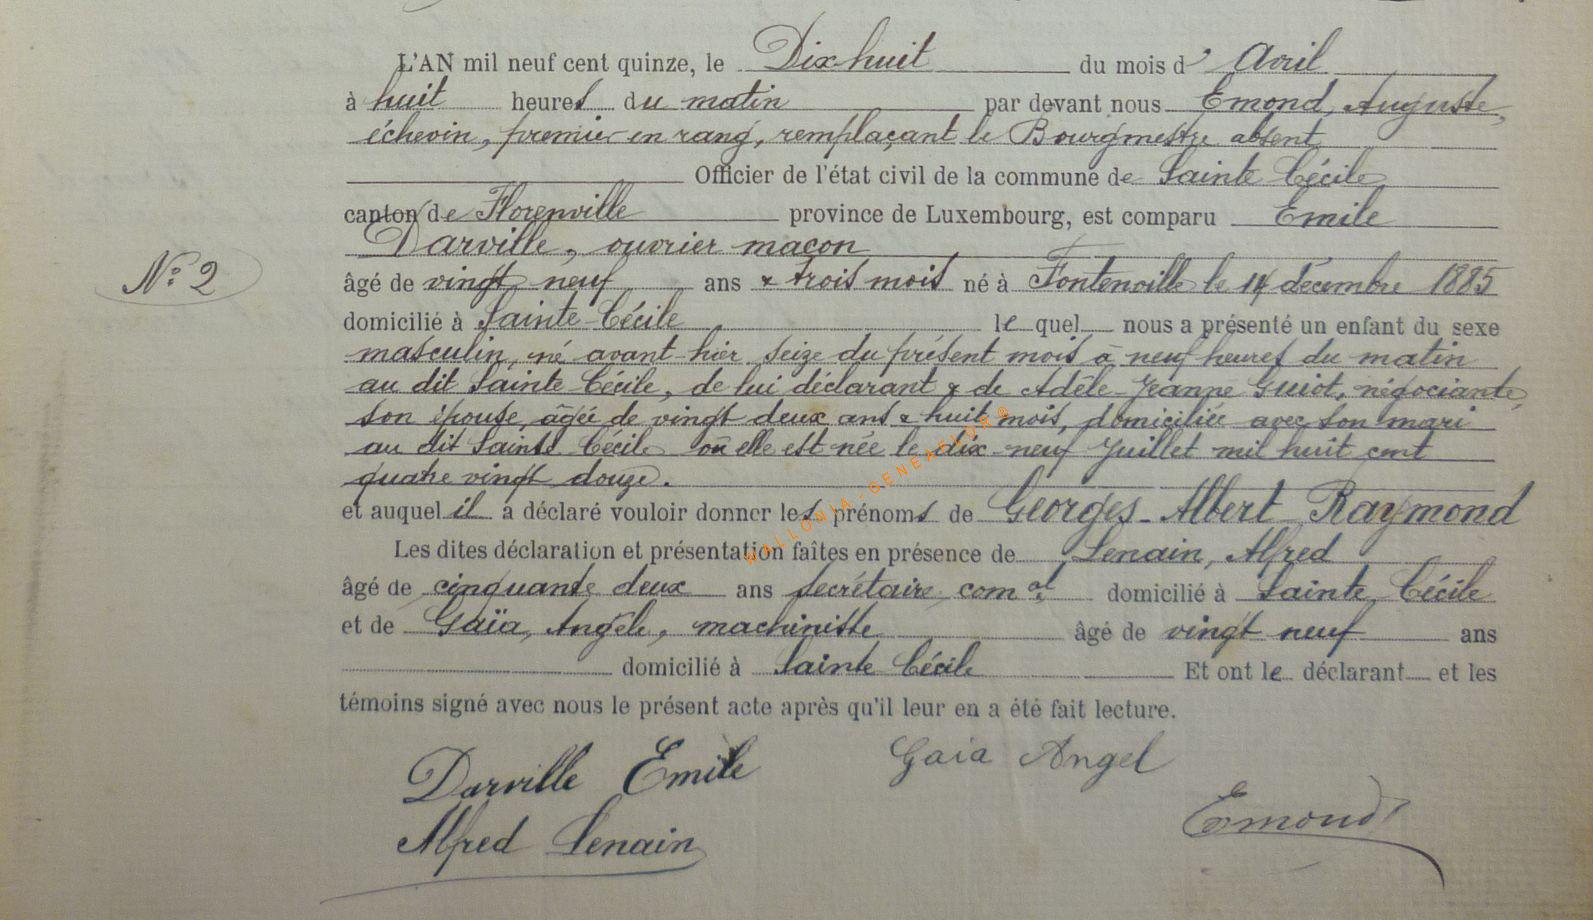 L'AN mil neuf cent quinze, le Dix-huit du mois d' Avril
à huit heures du matin par devant nous Emond, Auguste,
échevin, premier en rang, remplaçant le Bourgmestre absent
Officier de l'état civil de la commune de Sainte Cécile
canton de Florenville province de Luxembourg, est comparu Emile
Darville, ouvrier maçon
âgé de vingt neuf ans & trois mois né à Fontenoille le 14 décembre 1885
N° 2
domicilié à Sainte-Cécile lequel nous a présenté un enfant du sexe
masculin, né avant-hier seize du présent mois à neuf heures du matin
au dit Sainte Cécile, de lui déclarant & de Adèle-Jeanne Guiot, négociante,
son épouse, âgée de vingt deux ans & huit mois, domiciliée avec son mari
au dit Sainte Cécile où elle est née le dix-neuf Juillet mil huit cent
quatre vingt douze.
et auquel il a déclaré vouloir donner les prénoms de Georges-Albert-Raymond
Les dites déclaration et présentation faîtes en présence de Lenain, Alfred
âgé de cinquante deux ans secrétaire comal domicilié à Sainte Cécile
et de Gaïa, Angèle, machiniste âgé de vingt neuf ans
domicilié à Sainte Cécile Et ont le déclarant et les
témoins signé avec nous le présent acte après qu'il leur en a été fait lecture.
Darville Emile Gaia Angel
Emond
Alfred Lenain
WALLONIA-GENEA